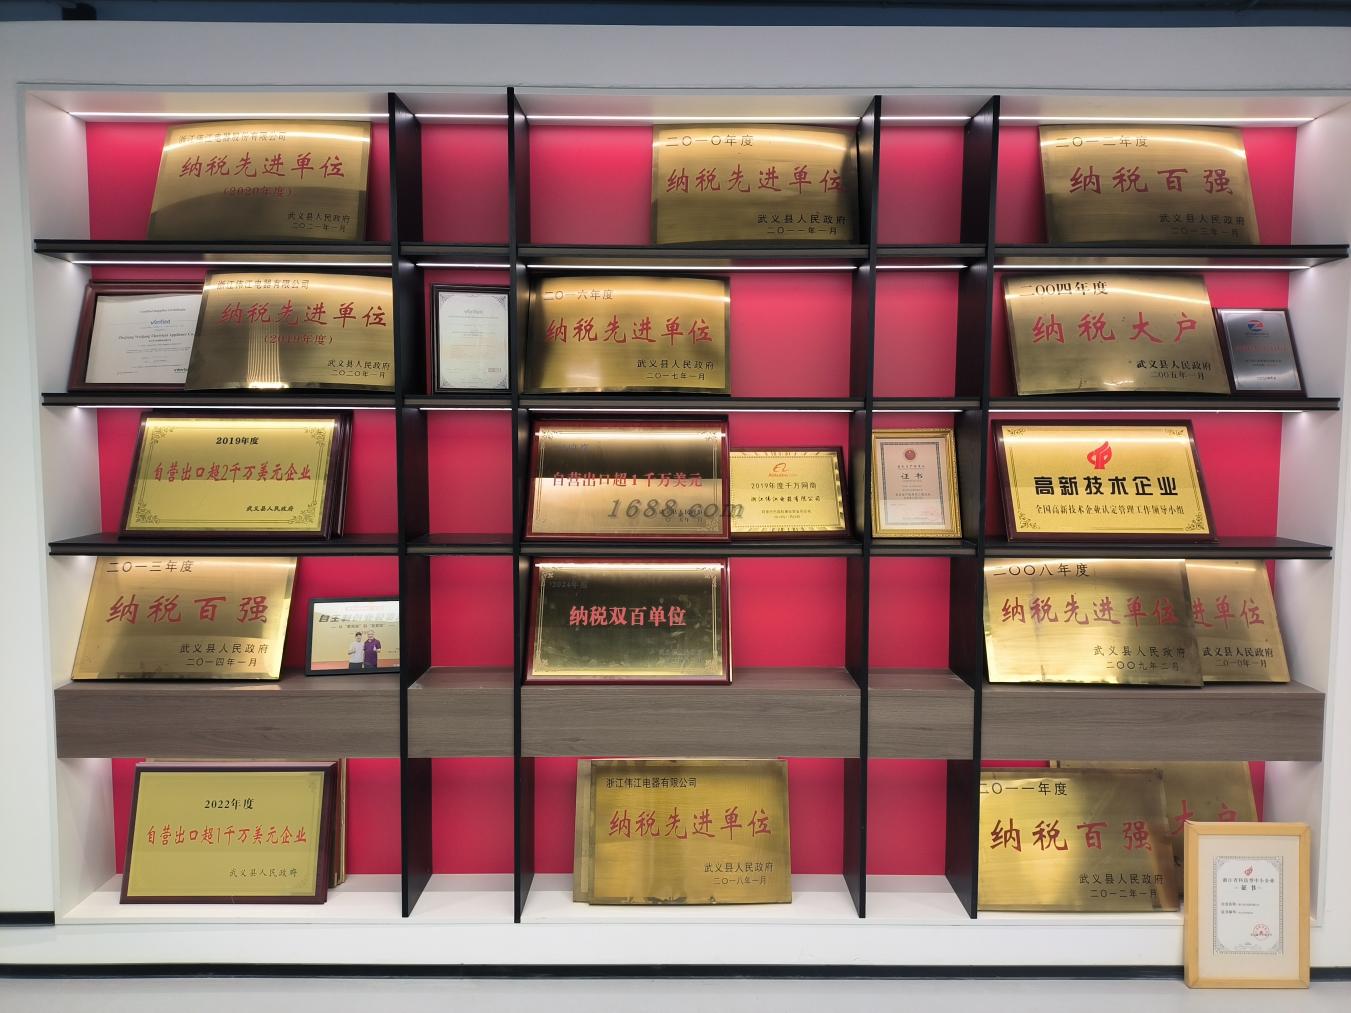 浙江伟江电器股份有限公司
纳税先进单位
(2020年度)
武义县人民政府
二〇二一年一月
二〇一〇年度
纳税先进单位
武义县人民政府
二〇一一年一月
二〇一二年度
纳税百强
武义县人民政府
二〇一三年一月
Verified
浙江伟江电器有限公司
纳税先进单位
(2019年度)
武义县人民政府
二〇二〇年一月
二〇一六年度
纳税先进单位
武义县人民政府
二〇一七年一月
二〇〇四年度
纳税大户
武义县人民政府
二〇〇五年一月
2019年度
自营出口超2千万美元企业
武义县人民政府
自营出口超1千万美元
1688.com
2019年度千万网商
浙江伟江电器有限公司
证书
高新技术企业
全国高新技术企业认定管理工作领导小组
二〇一三年度
纳税百强
武义县人民政府
二〇一四年一月
2024年度
纳税双百单位
二〇〇八年度
纳税先进单位
武义县人民政府
二〇〇九年二月
进单位
武义县人民政府
二〇一〇年一月
2022年度
自营出口超1千万美元企业
武义县人民政府
浙江伟江电器有限公司
纳税先进单位
武义县人民政府
二〇一八年一月
二〇一一年度
纳税百强
武义县人民政府
二〇一二年一月
大户
浙江省科技型中小企业
证书